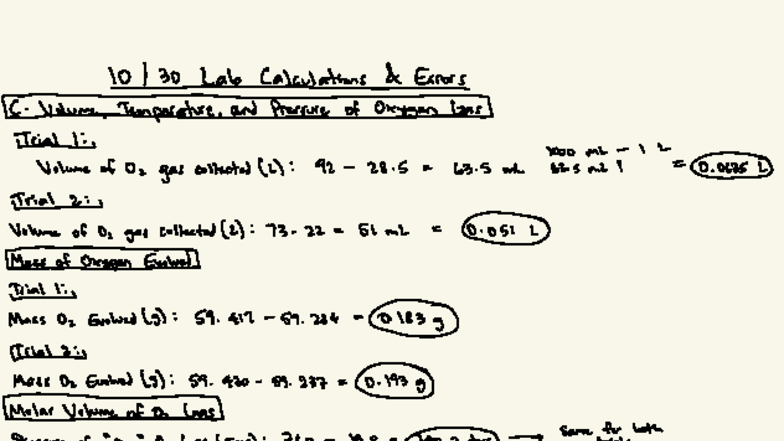 10 | 30 Lab Calculations & Errors
C. Volume, Temperature, and Pressure of Oxygen Gas
Trial 1:
1000 mL - 1 L
Volume of O₂ gas collected (L): 92 - 28.5 = 63.5 mL = 0.0635 L
Trial 2:
Volume of O₂ gas collected (L): 73 - 22 = 51 mL = 0.051 L
Mass of Oxygen Evolved
Trial 1:
Mass O₂ Evolved (g): 59.417 - 59.234 = 0.183 g
Trial 2:
Mass O₂ Evolved (g): 59.430 - 59.237 = 0.193 g
Molar Volume of O₂ Gas
Same for both